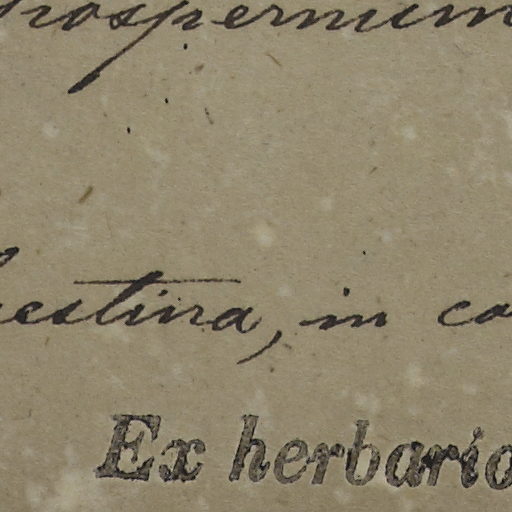 rospermum
hestina, in co
Ex herbario